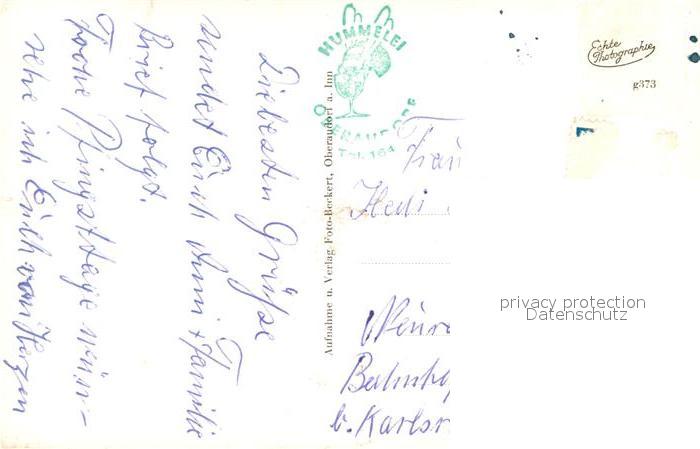 Liebesten Grüße
sendet Euch Anni + Familie
Brief folgt.
Frohe Pfingsttage wün-
sche ich Euch von Herzen
HUMMELEI
OBERAUDORF
Tel. 164
Aufnahme u. Verlag Foto-Beckert, Oberaudorf a. Inn
Echte
Photographie
g373
Frau
Hedi
Neure
Bahnho
b. Karlsr
privacy protection
Datenschutz